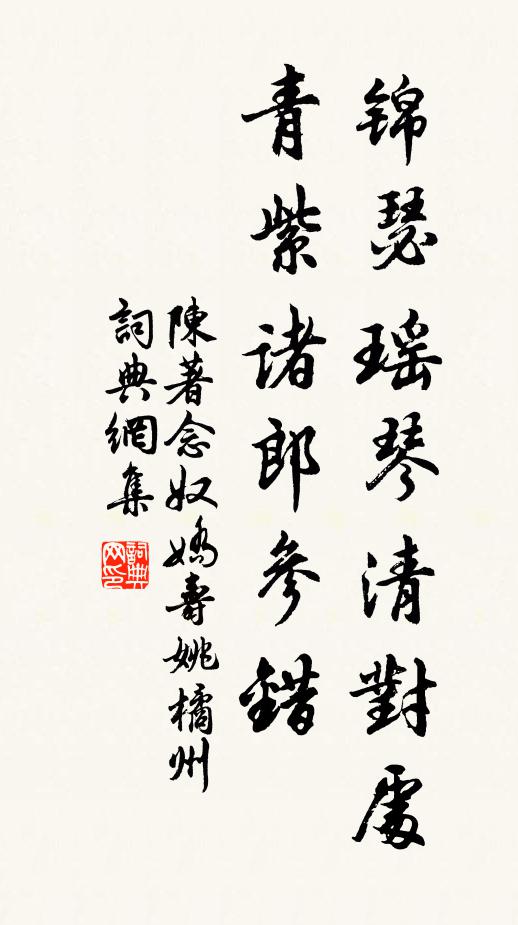 锦瑟瑶琴清對處
青紫诸郎參錯
陳著念奴嬌壽姚橘州
詞典網集
詞典网印